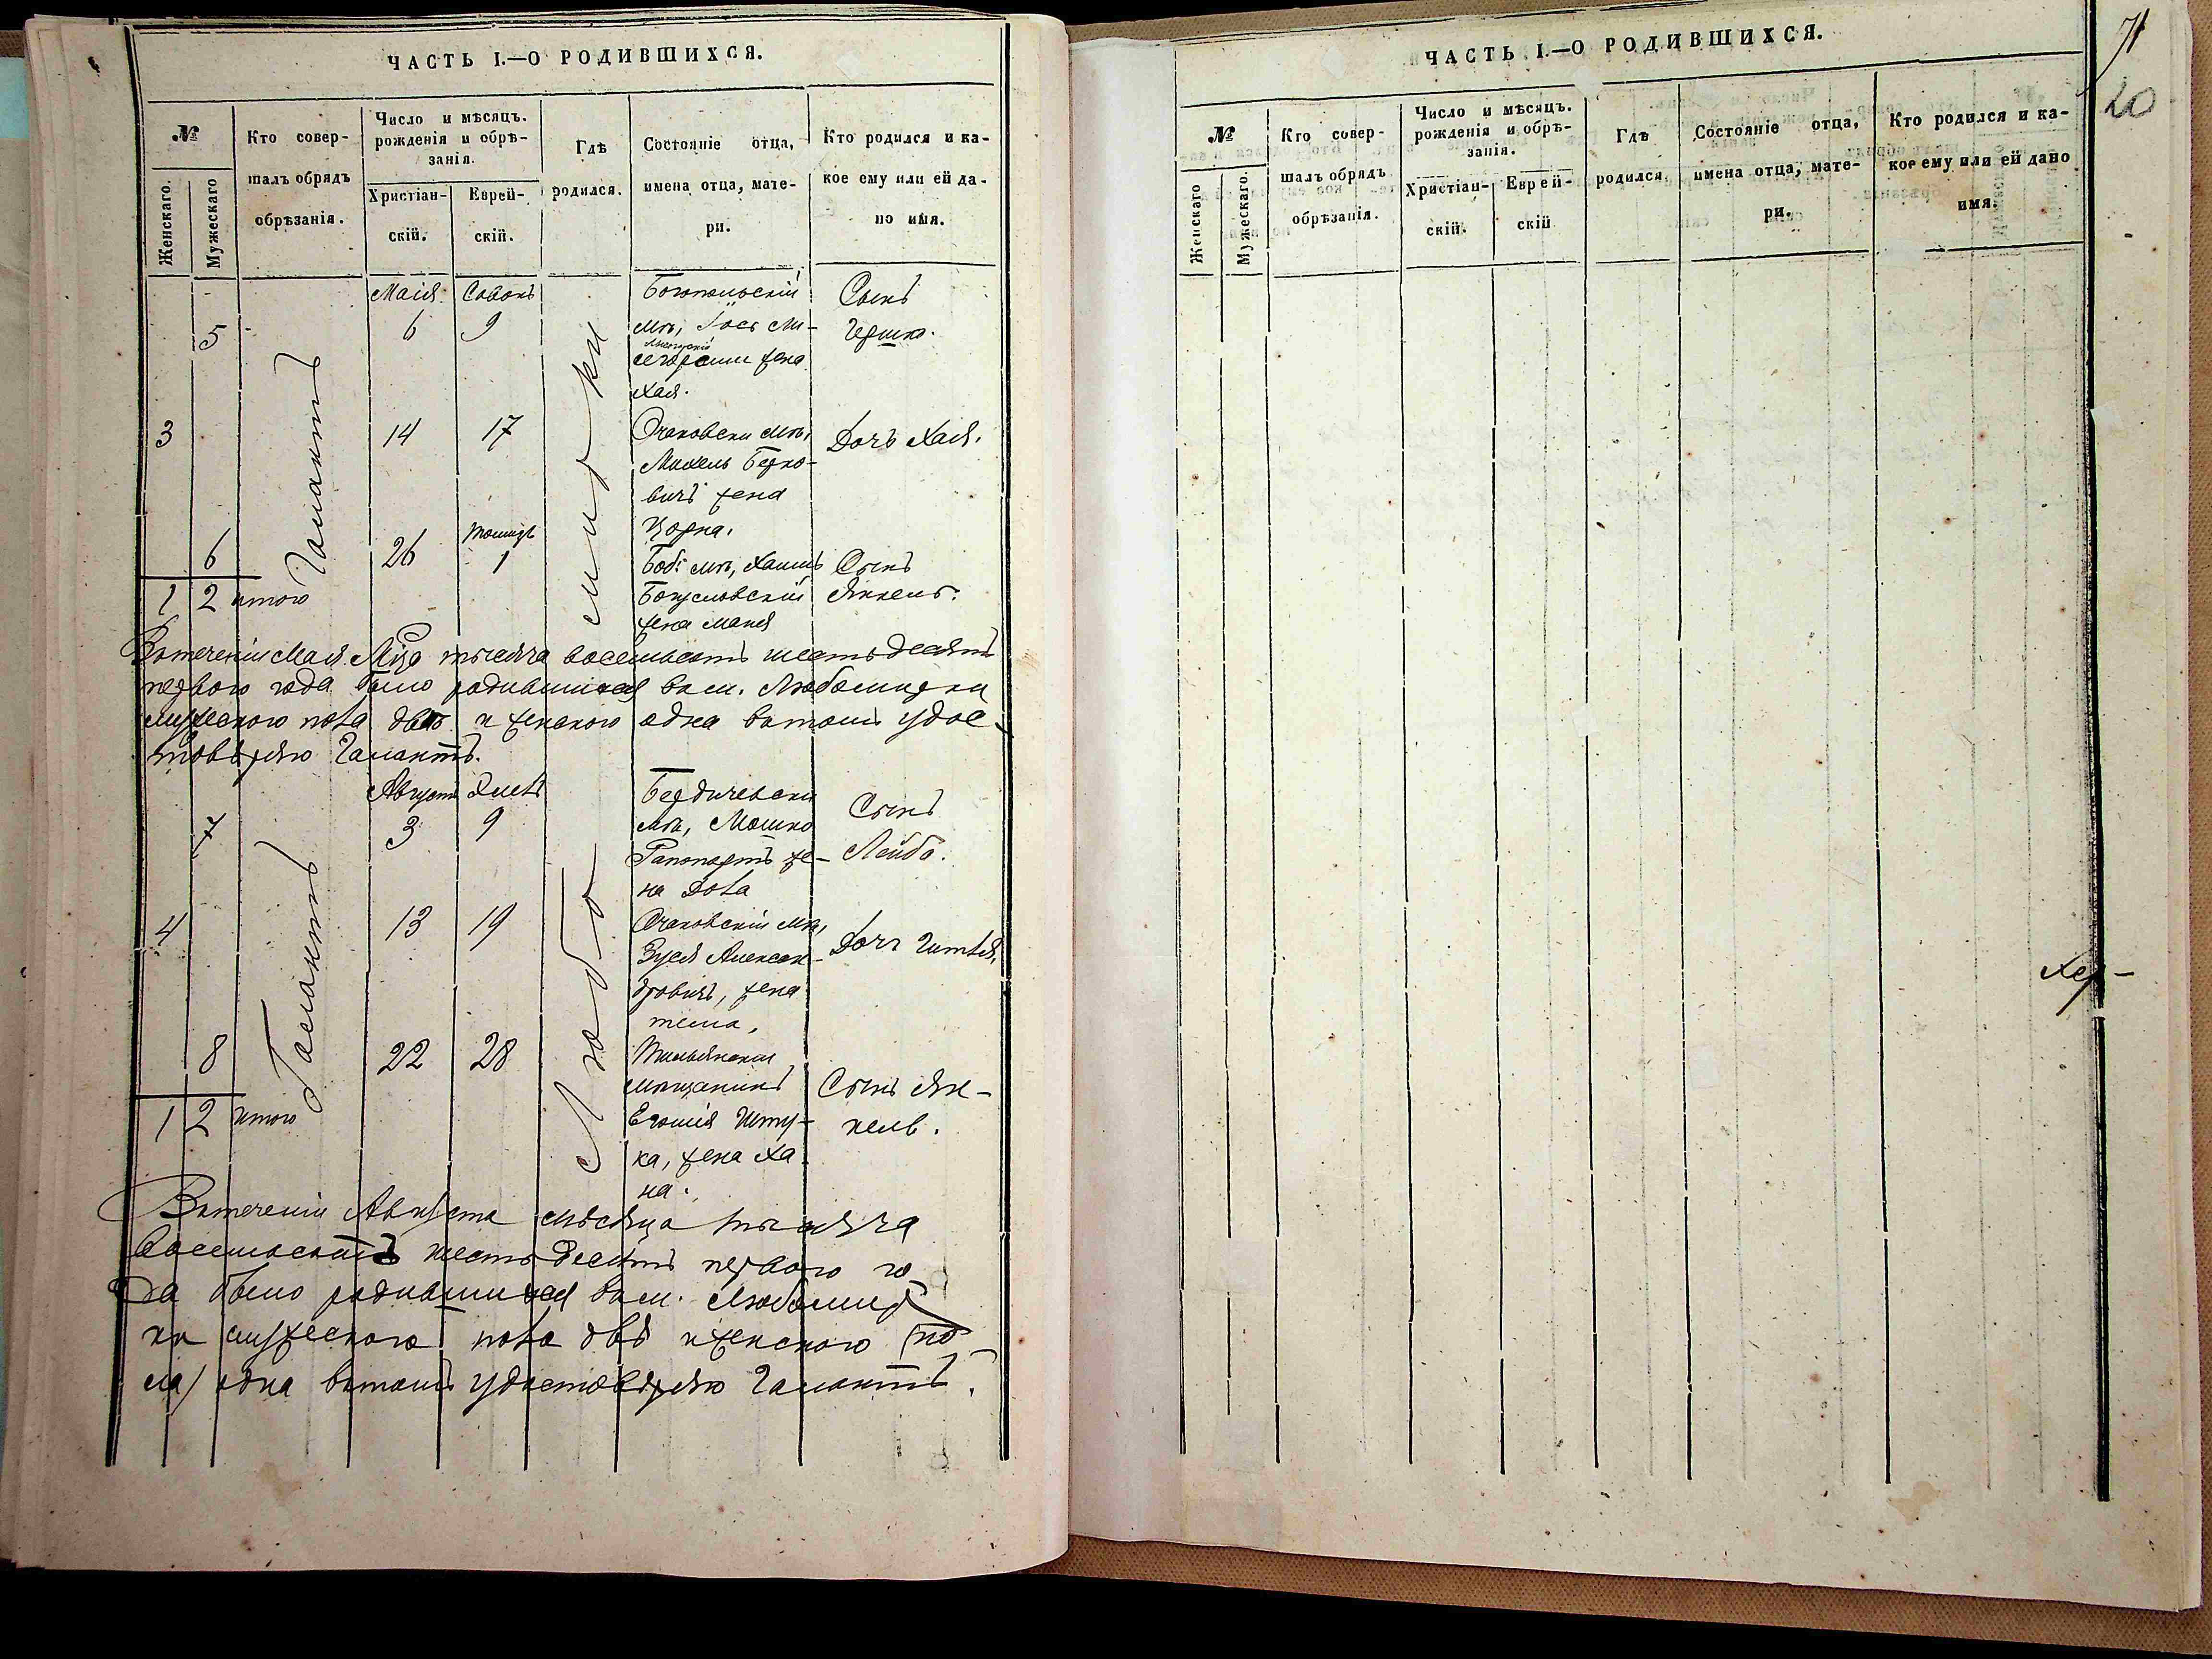 ЧАСТЬ I.—О РОДИВШИХСЯ.
№
Женскаго.
Мужескаго
Кто совер-
шалъ обрядъ
обрѣзанія.
Число и мѣсяцъ.
рожденія и обрѣ-
занія.
Христіан-
скій.
Еврей-
скій.
Гдѣ
родился.
Состояніе отца,
имена отца, мате-
ри.
Кто родился и ка-
кое ему или ей да-
но имя.
5
Галантъ
Маія
6
9
Мирки
жена
Хая.
Сынъ
Гершко.
3
14
17
Очаковски мѣ,
Михель Берко-
вичъ жена
Дочь Хая.
6
26
1
мѣ, Хаимъ
Богуславскій
жена
Сынъ
Янкель.
1 2 итого
Втеченіи Мая Мца тысяча восемьсотъ шестьдесятъ
перваго года было родившихся вс. Любомирки
мужескаго пола два и женскаго одна втомъ удос-
товѣряю Галантъ.
7
Галантъ
Августъ
3
9
Любо
Бердичевски
мѣ, Мошко
Рапопортъ же-
на
Сынъ
Лейба.
4
13
19
Очаковскій мѣ,
Зуся Алексан-
дровичъ, жена
Дочь Гитля.
8
22
28
мѣщанинъ
ка, жена Ха
на.
Сынъ Ян-
кель.
1 2 итого
Втеченіи Августа мѣсяца тысяча
восемьсотъ шестьдесятъ перваго го
да было родившихся вс. Любомир
ки мужескаго пола два и женскаго (по-
ла) одна втомъ удостовѣряю Галантъ.
ЧАСТЬ I.—О РОДИВШИХСЯ.
71
20
№
Женскаго
Мужескаго.
Кто совер-
шалъ обрядъ
обрѣзанія.
Число и мѣсяцъ.
рожденія и обрѣ-
занія.
Христіан-
скій.
Еврей-
скій
Гдѣ
родился
Состояніе отца,
имена отца, мате-
ри.
Кто родился и ка-
кое ему или ей дано
имя.
Хер-